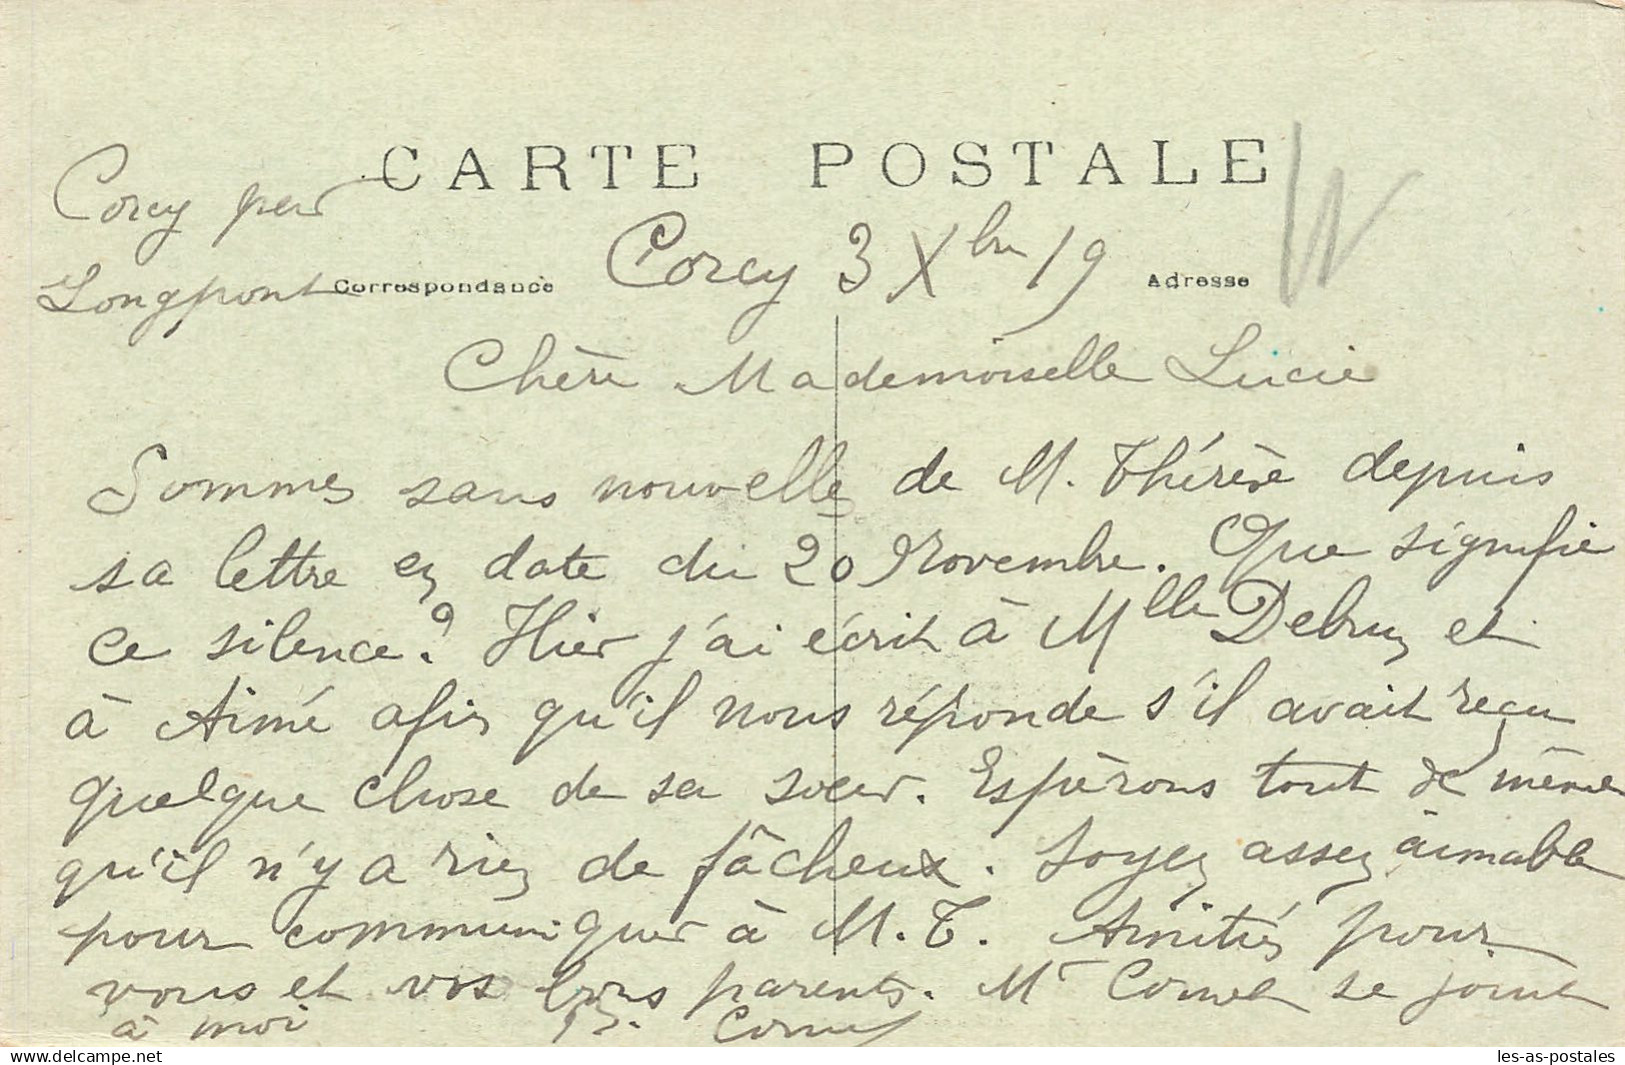 CARTE POSTALE
Corcy par
Longpont
Correspondance
Corcy 3 Xbre 19
Adresse
Chère Mademoiselle Lucie
Sommes sans nouvelles de M. Thérèse depuis
sa lettre en date du 20 Novembre. Que signifie
ce silence? Hier j'ai écrit à Mlle Debruy et
à Aimé afin qu'il nous réponde s'il avait reçu
quelque chose de sa soeur. Espérons tout de même
qu'il n'y a rien de fâcheux. Soyez assez aimable
pour communiquer à M. T. Amitiés pour
vous et vos bons parents. Mr Cornet se joint
à moi Cornet
les-as-postales.com
les-as-postales